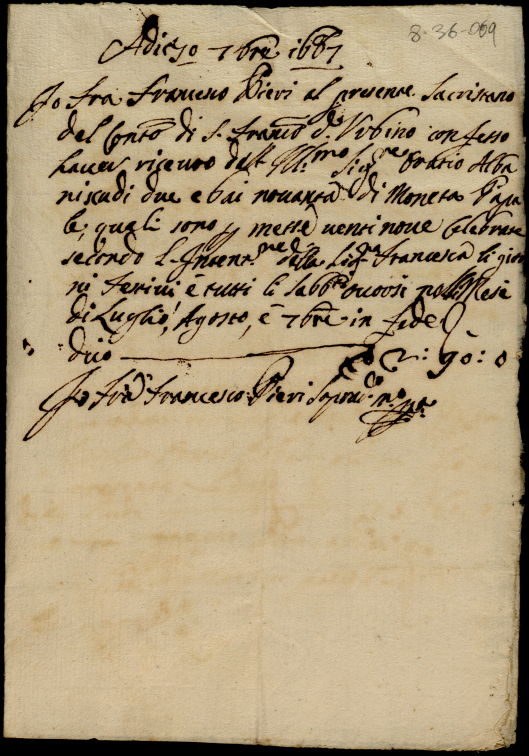 8-36-009
Adi 30 7bre 1687
Jo fra Francesco Pieri al presente Sacristano
del Conto di S. Franco d'Urbino confesso
havere ricevuto dall Illmo Sigre Oratio Alba
ni scudi due e bai novanta di Moneta Papa
le, quali sono p messe venti nove celebrate
secondo l'Intentne della Sigra Francesca li gior
ni feriui è tutti li Sabbti nel Mese
di Luglio, Agosto, è 7bre in fede
dico 2: 90: 0
Jo fra Francesco Pieri Sopradto mo ppa